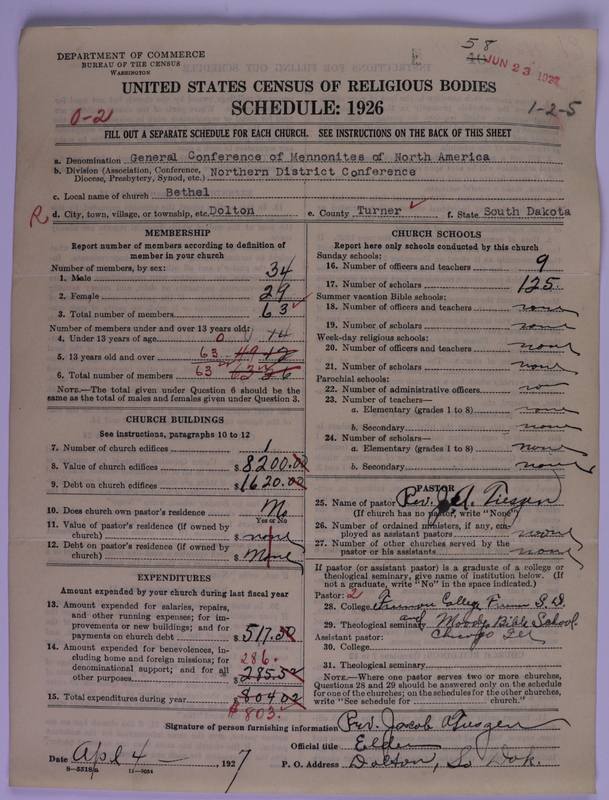 DEPARTMENT OF COMMERCE
BUREAU OF THE CENSUS
WASHINGTON
58
JUN 23 1927
UNITED STATES CENSUS OF RELIGIOUS BODIES
SCHEDULE: 1926
0-2
1-2-5
FILL OUT A SEPARATE SCHEDULE FOR EACH CHURCH. SEE INSTRUCTIONS ON THE BACK OF THIS SHEET
a. Denomination General Conference of Mennonites of North America
b. Division (Association, Conference, Diocese, Presbytery, Synod, etc.) Northern District Conference
c. Local name of church Bethel
R d. City, town, village, or township, etc. Dolton e. County Turner f. State South Dakota
MEMBERSHIP
Report number of members according to definition of
member in your church
Number of members, by sex:
1. Male 34
2. Female 29
3. Total number of members 63
Number of members under and over 13 years old:
4. Under 13 years of age 0 14
5. 13 years old and over 63 49 12
6. Total number of members 63 63 26
NOTE.—The total given under Question 6 should be the
same as the total of males and females given under Question 3.
CHURCH BUILDINGS
See instructions, paragraphs 10 to 12
7. Number of church edifices 1
8. Value of church edifices $ 8200.00
9. Debt on church edifices $ 1620.00
10. Does church own pastor's residence No
Yes or No
11. Value of pastor's residence (if owned by
church) $ none
12. Debt on pastor's residence (if owned by
church) $ None
EXPENDITURES
Amount expended by your church during last fiscal year
13. Amount expended for salaries, repairs,
and other running expenses; for im-
provements or new buildings; and for
payments on church debt $ 517.50
14. Amount expended for benevolences, in-
cluding home and foreign missions; for
denominational support; and for all 286.
other purposes $ 285.52
15. Total expenditures during year $ 804.02
$ 803.
CHURCH SCHOOLS
Report here only schools conducted by this church
Sunday schools:
16. Number of officers and teachers 9
17. Number of scholars 125
Summer vacation Bible schools:
18. Number of officers and teachers none
19. Number of scholars none
Week-day religious schools:
20. Number of officers and teachers none
21. Number of scholars none
Parochial schools:
22. Number of administrative officers no
23. Number of teachers—
a. Elementary (grades 1 to 8) none
b. Secondary none
24. Number of scholars—
a. Elementary (grades 1 to 8) none
b. Secondary none
PASTOR
25. Name of pastor Rev. J. A. Tieszen
(If church has no pastor, write "None")
26. Number of ordained ministers, if any, em-
ployed as assistant pastors none
27. Number of other churches served by the
pastor or his assistants none
If pastor (or assistant pastor) is a graduate of a college or
theological seminary, give name of institution below. (If
not a graduate, write "No" in the space indicated.)
Pastor: 2
28. College Freeman College Freeman S.D.
29. Theological seminary and Moody Bible School
Assistant pastor: Chicago Ill
30. College
31. Theological seminary
NOTE.—Where one pastor serves two or more churches,
Questions 28 and 29 should be answered only on the schedule
for one of the churches; on the schedules for the other churches,
write "See schedule for church."
Signature of person furnishing information Rev. Jacob A Tieszen
Official title Elder
Date Apl 4 , 1927 P. O. Address Dolton, So Dak.
8—5518a 11—9054